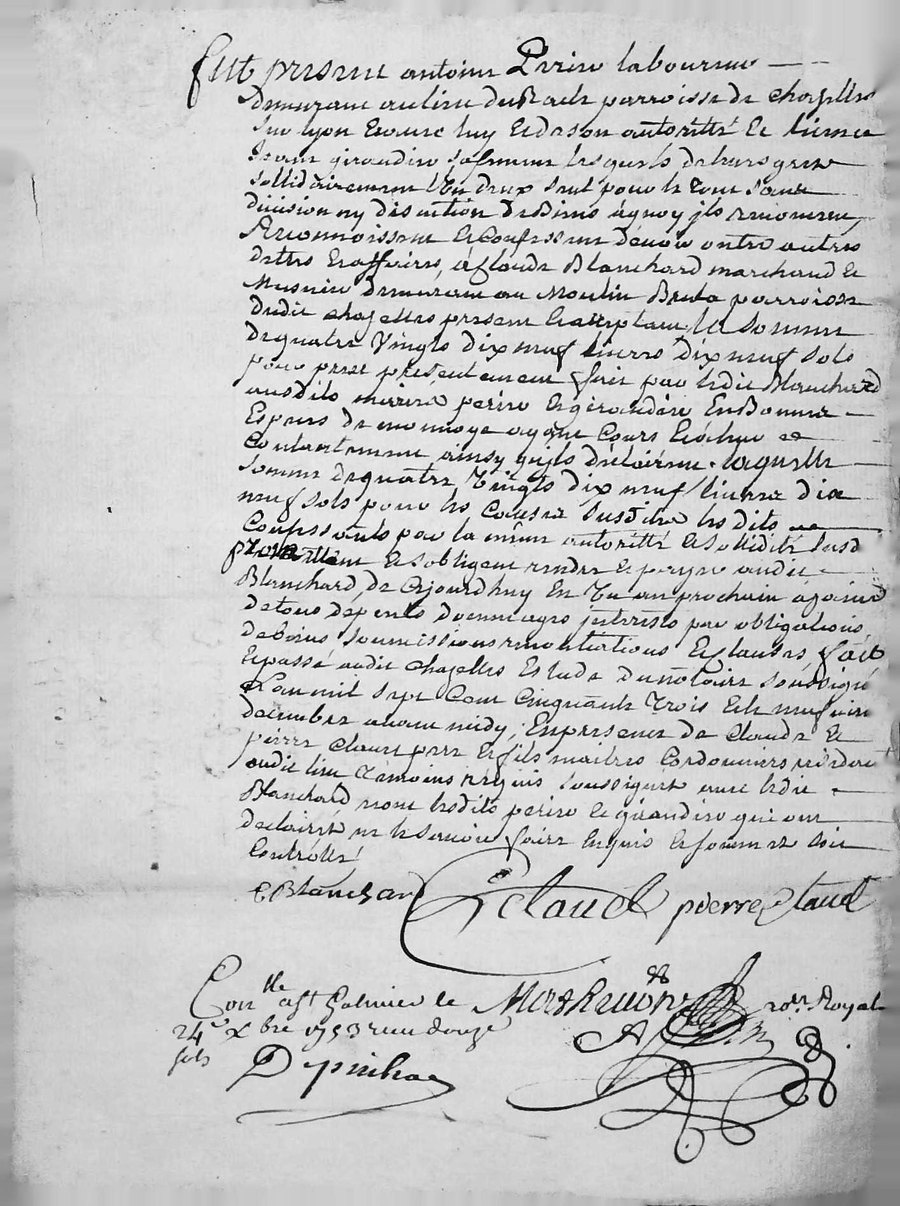 fut present antoine Perire laboureur
demurant au lieu du Rade parroisse de chazelles
sur lyon Lequel luy et de son autoritté et licence
girardire sa femme lesquels de leurs grez
sollidairement l'un deux seul pour le tout sans
division ny discution de biens a quoy jls renoncent,
Reconnoissent et Confessent devoir outre autres
dettes et affaires, a Claude Blanchard marchand et
Musnier demurant au Moulin Brula parroisse
dudit chazelles present et acceptant la somme
de quatre vingts dix neuf livres dix neuf sols
pour prest presentement fait par ledit Blanchard
ausdits mariez perire et girardire En Bonnes
Espeses de monnoye ayant Cours
Contentement ainsy quils déclairent. laquelle
somme de quatre vingts dix neuf livres dix
neuf sols pour les causes susdites lesdits
Confessants par la même autoritté et sollidité susd
promettent et sobligent rendre et payer audit
Blanchard, de Cejourdhuy En Un an prochain a peine
de tous depents dommages jnterests par obligations
de biens soumissions renontiations et clauses fait
et passé audit chazelles Estude du notaire soussigné
L'an mil sept Cent Cinquante Trois et le neufvie
decembre avant midy; En presence de Claude et
pierre Claud pere et fils maitres Cordonniers residant
audit lieu temoins requis soussignés avec ledit
Blanchard non lesdits perire et girardire qui ont
declairés ne le savoir faire Enquis et sommez soit
Controllé
C Blanchard C Claud pierre Claud
Con.lle a St Galmier le no.re Royal
24e Xbre 1753 recu douze
sols